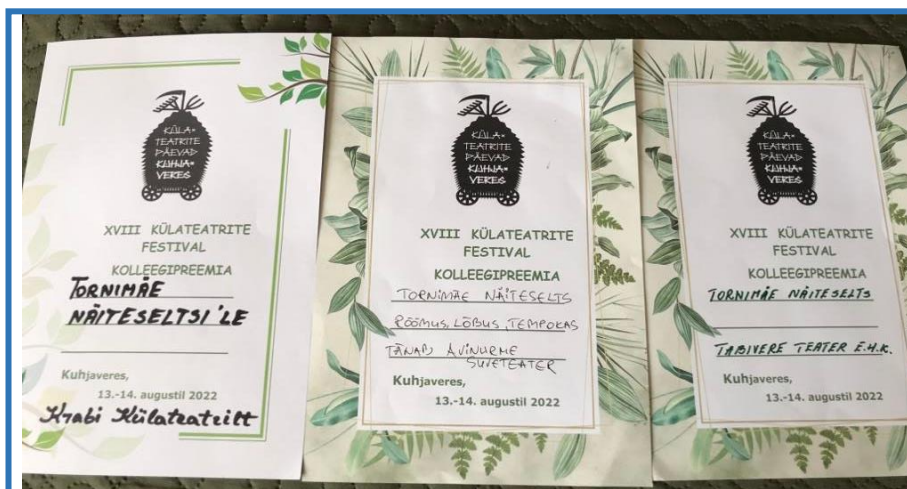 KÜLA-
TEATRITE
PÄEVAD
KUHJA-
VERES
XVIII KÜLATEATRITE
FESTIVAL
KOLLEEGIPREEMIA
TORNIMÄE
NÄITESELTSI'LE
Kuhjaveres,
13.-14. augustil 2022
Krabi Külateatrilt
KÜLA-
TEATRITE
PÄEVAD
KUHJA-
VERES
XVIII KÜLATEATRITE
FESTIVAL
KOLLEEGIPREEMIA
TORNIMÄE NÄITESELTS
RÕÕMUS, LÕBUS, TEMPOKAS
TÄNAB AVINURME
SUVETEATER
Kuhjaveres,
13.-14. augustil 2022
KÜLA-
TEATRITE
PÄEVAD
KUHJA-
VERES
XVIII KÜLATEATRITE
FESTIVAL
KOLLEEGIPREEMIA
TORNIMÄE NÄITESELTS
TABIVERE TEATER E.H.K.
Kuhjaveres,
13.-14. augustil 2022